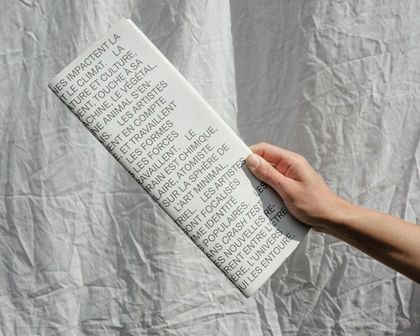 ES IMPACTENT LA
LE CLIMAT. LA
TURE ET CULTURE,
ENT, TOUCHE À SA
CHINE, LE VÉGÉTAL,
NE ANIMAL S'EN-
NS. LES ARTISTES
ENT EN COMPTE
E, ET TRAVAILLENT
LES FORMES
LES FORCES
AVAILLENT. LE
RAIN EST CHIMIQUE,
AIRE, ATOMISTE.
SUR LA SPHÈRE DE
L'ART MINIMAL,
RIEL. LES ARTISTES
ONT FOCALISÉS
ME IDENTITÉ
POPULAIRES.
NS CRASH-TEST
ES NOUVELLES RE-
RENT ENTRE L'ÊTRE
ÈRE, L'UNIVERS
UI LES ENTOURE.